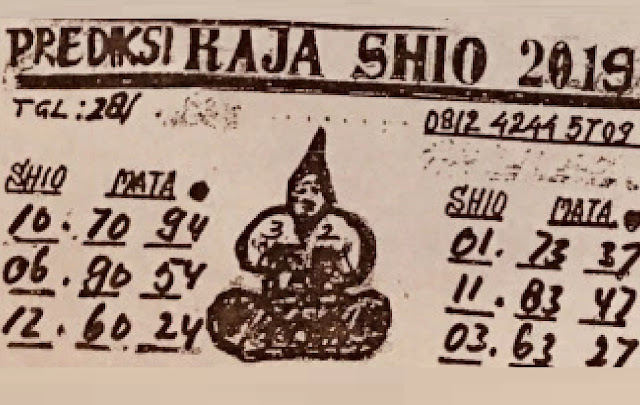 PREDIKSI RAJA SHIO 2019
TGL : 28/
0812 4244 5709
SHIO MATA
10 . 70 94
06 . 90 54
12 . 60 24
3 2
SHIO MATA
01 . 73 37
11 . 83 47
03 . 63 27